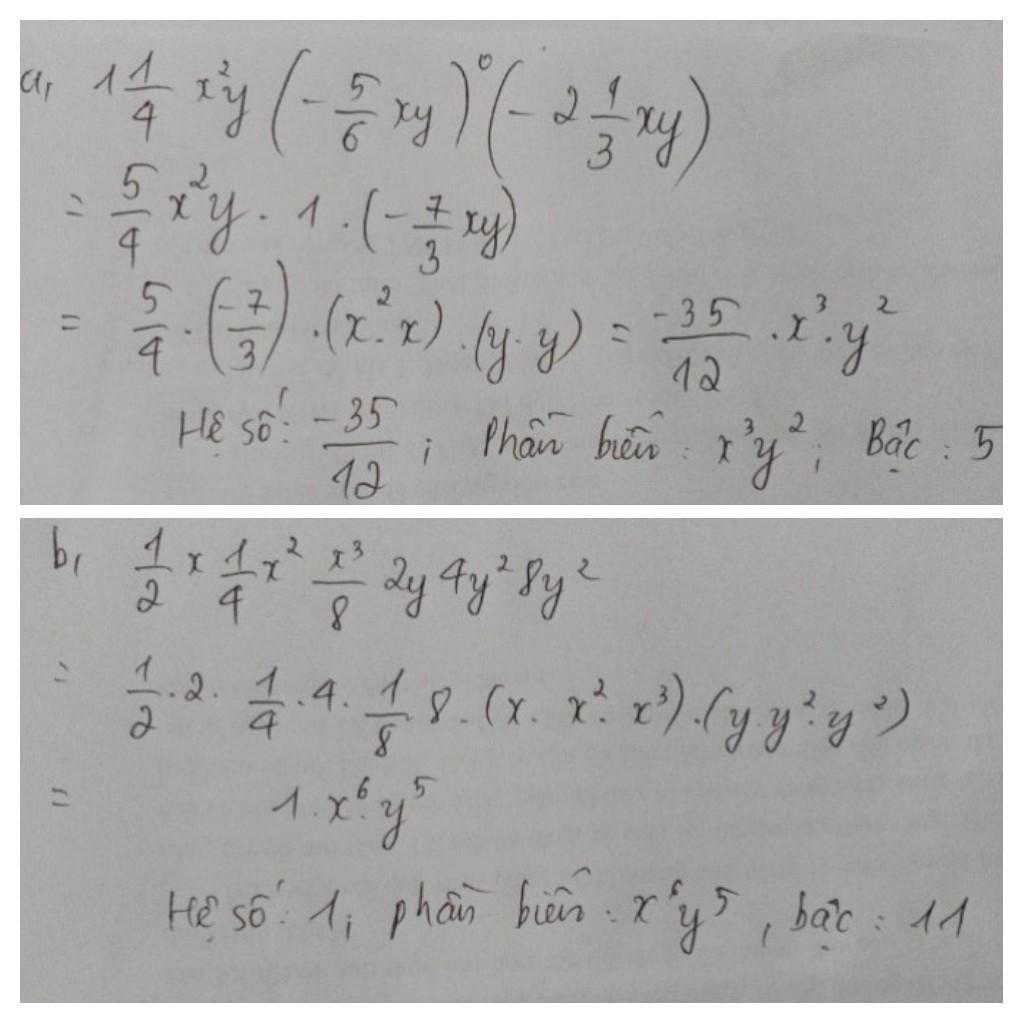 a, 1 1/4 x²y (- 5/6 xy)⁰ (- 2 1/3 xy)
= 5/4 x²y . 1 . (- 7/3 xy)
= 5/4 . (-7/3) . (x² . x) . (y . y) = -35/12 . x³ . y²
Hệ số : -35/12 ; Phần biến : x³y² ; Bậc : 5
b, 1/2 x 1/4 x² x³/8 2y 4y² 8y²
= 1/2 . 2 . 1/4 . 4 . 1/8 8 . (x . x² . x³) . (y . y² . y²)
= 1 . x⁶ . y⁵
Hệ số : 1 ; phần biến : x⁶y⁵ , bậc : 11